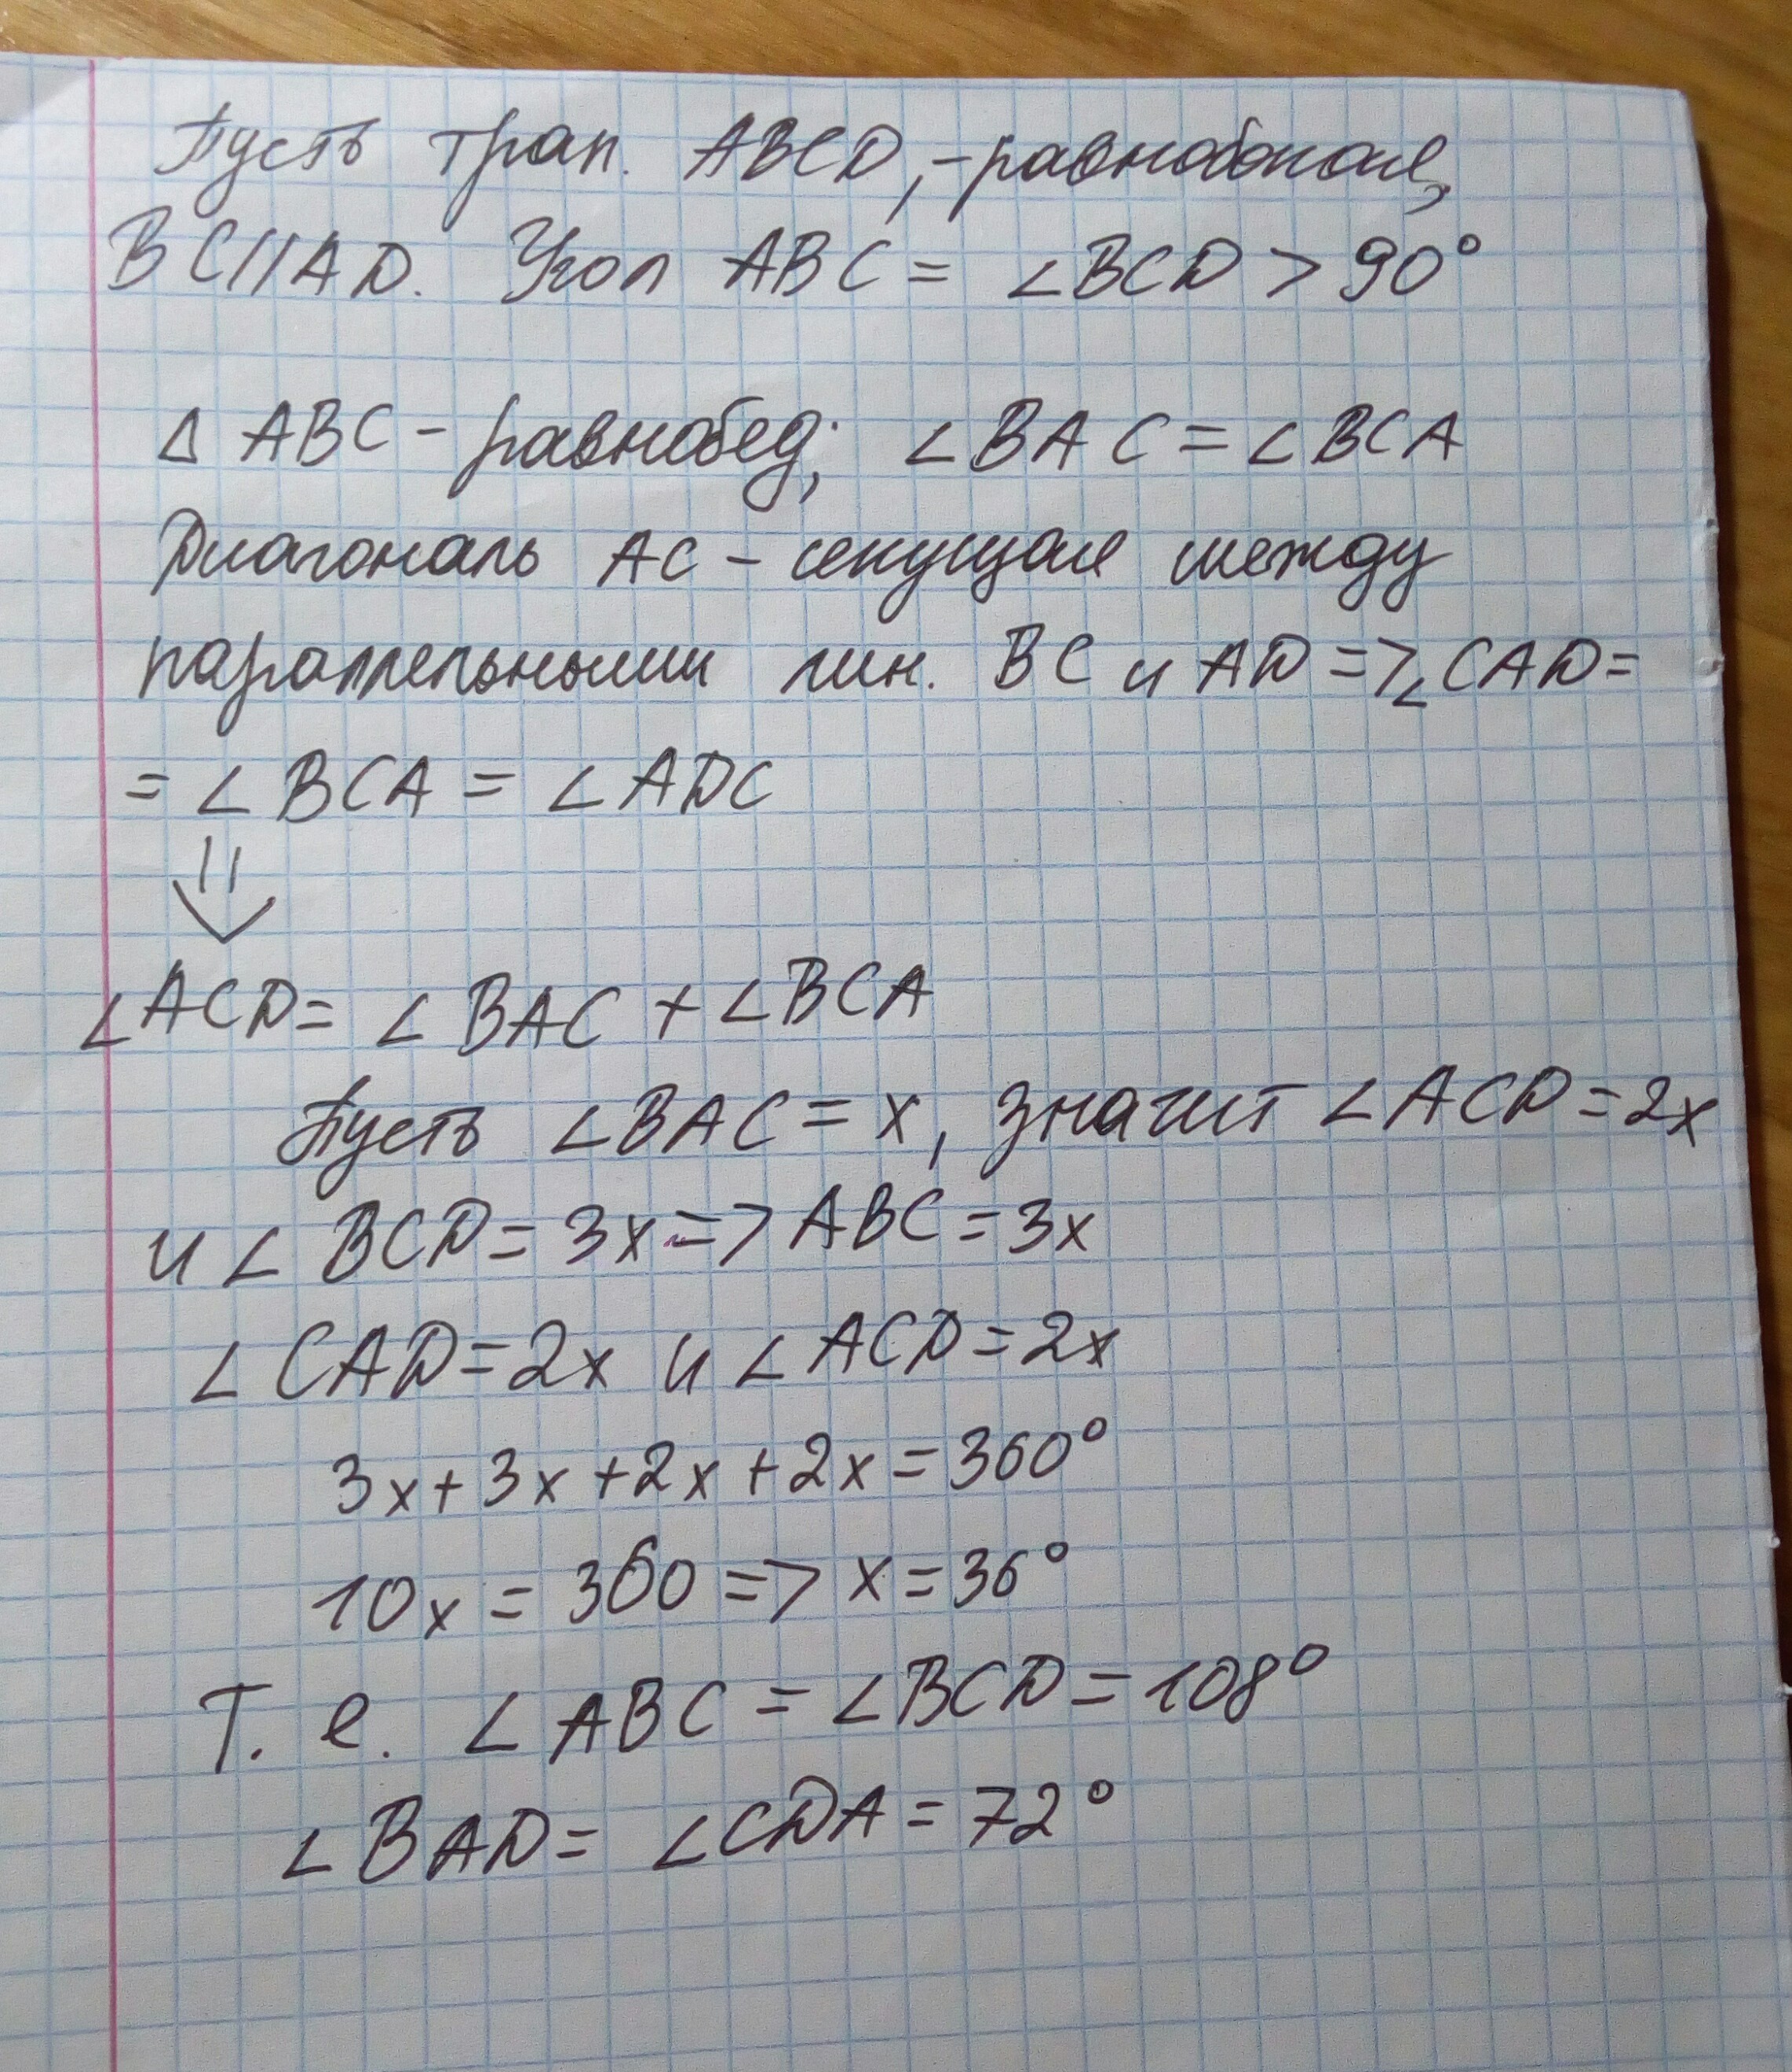 Пусть трап. ABCD, - равнобокая,
BC//AD. Угол ABC = ∠BCD > 90°
Δ ABC - равнобед; ∠BAC = ∠BCA
Диагональ AC - секущая между
параллельными лин. BC и AD => ∠CAD =
= ∠BCA = ∠ADC
⇓
∠ACD = ∠BAC + ∠BCA
Пусть ∠BAC = x, значит ∠ACD = 2x
и ∠BCD = 3x => ABC = 3x
∠CAD = 2x и ∠ACD = 2x
3x + 3x + 2x + 2x = 360°
10x = 360 => x = 36°
Т. е. ∠ABC = ∠BCD = 108°
∠BAD = ∠CDA = 72°